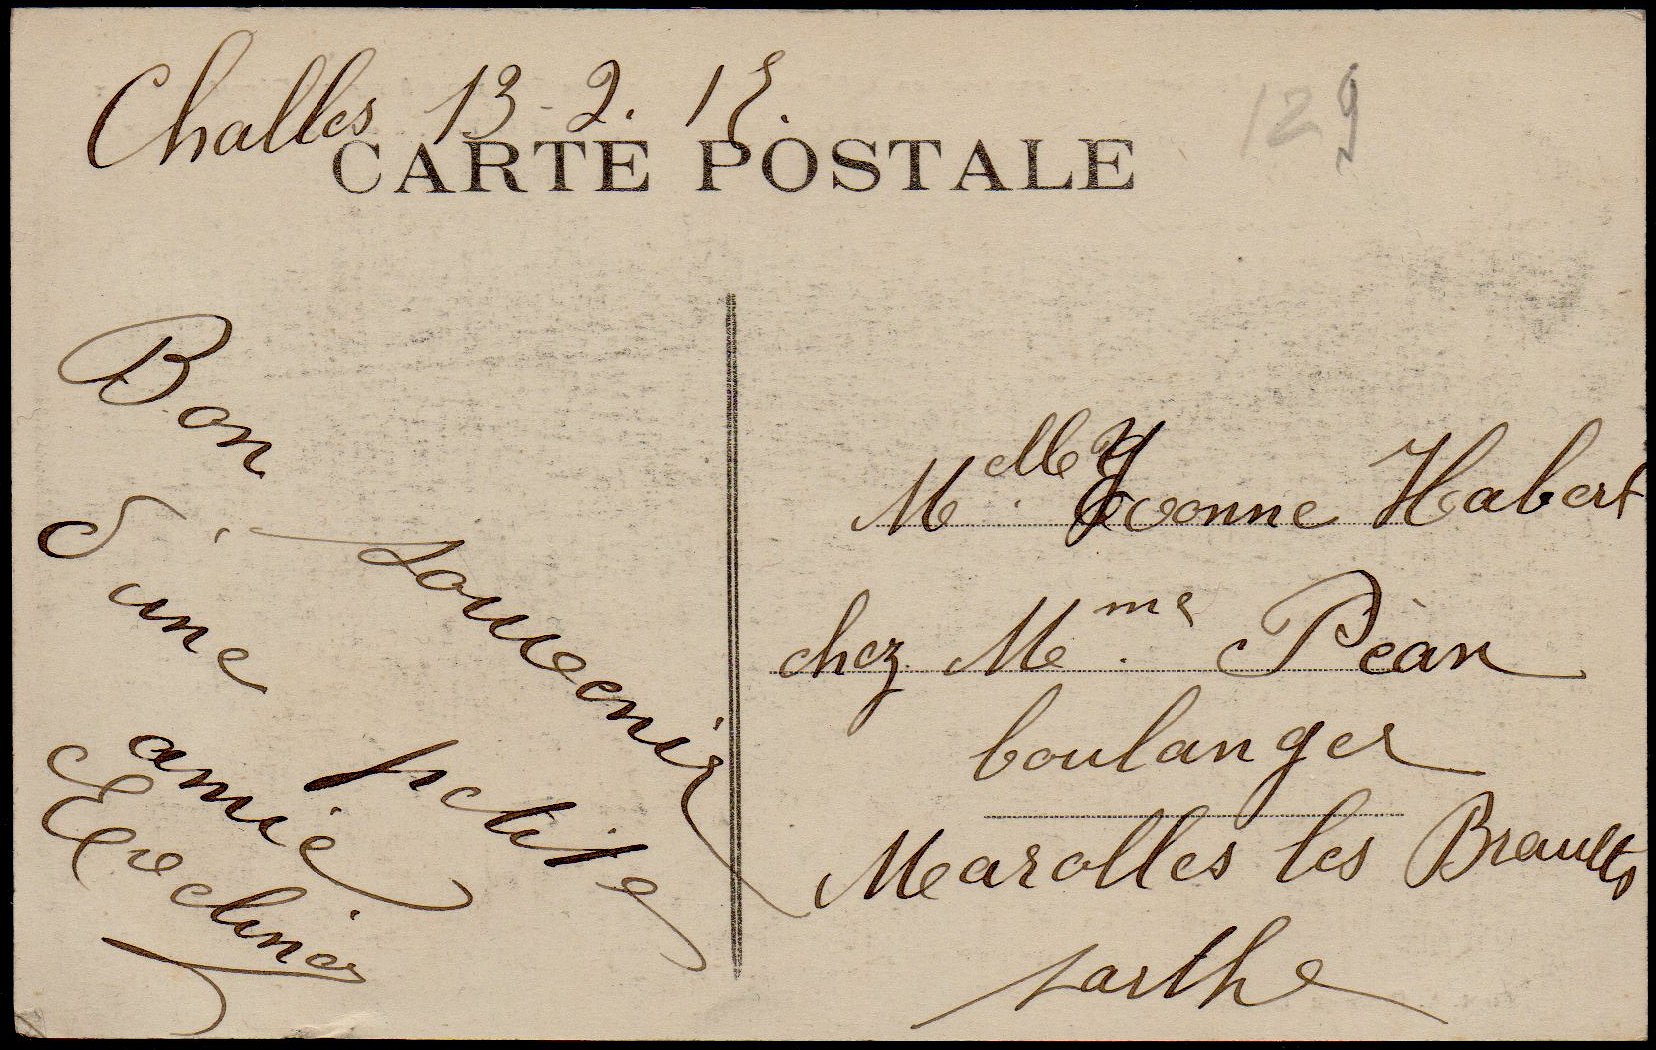 Challes 13-2. 15.
129
CARTE POSTALE
Bon souvenir
d'une petite
amie
Eveline
Melle Yvonne Habert
chez Mme Péan
boulanger
Marolles les Braults
sarthe